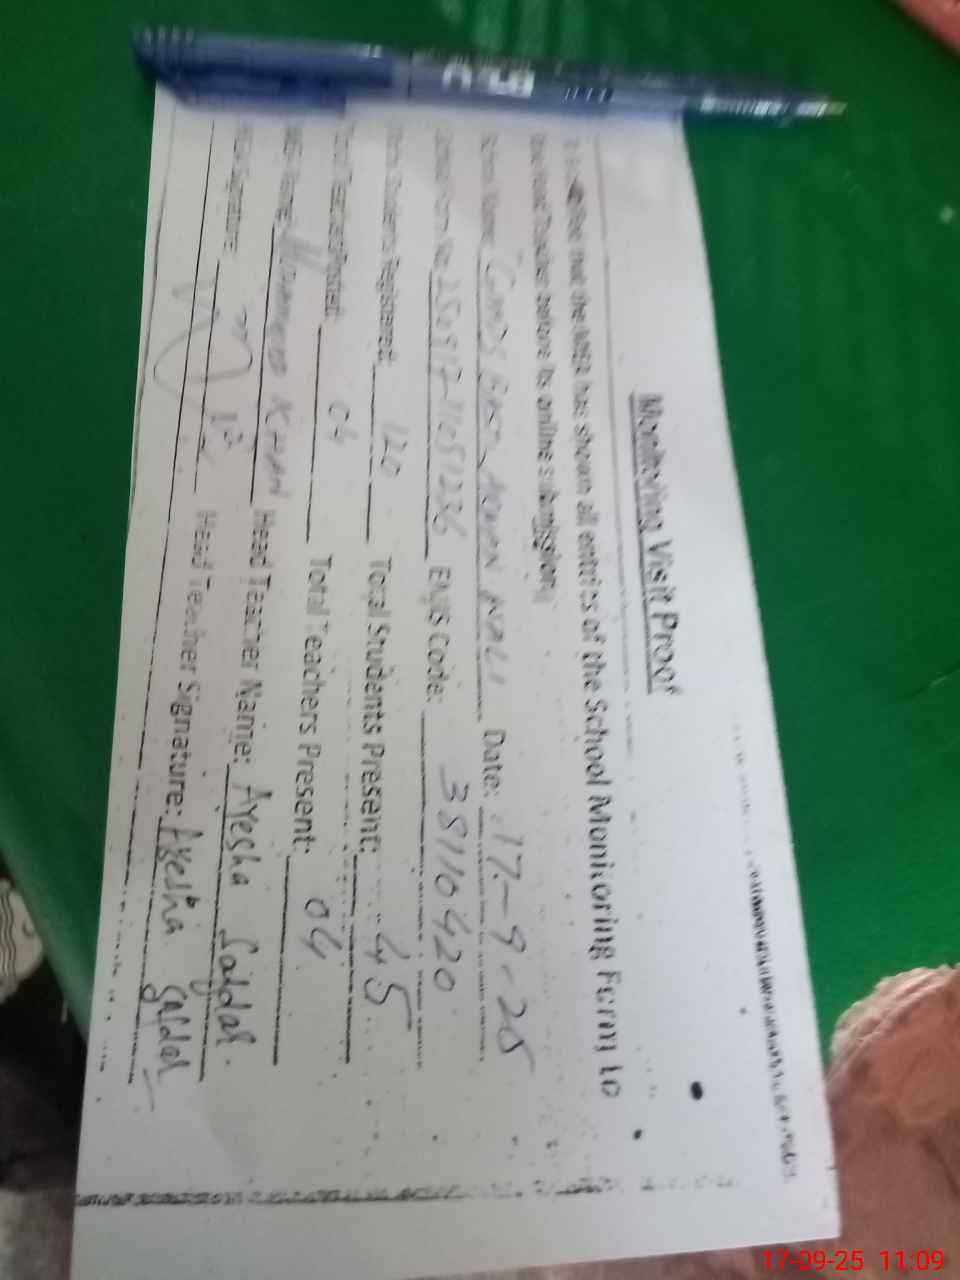 Monitoring Visit Proof
that the MEA has shown all entries of the School Monitoring Form to
the Head Teacher before its online submission.
School Name: GMPS Date: 17-9-25
No: 250917-11051236 EMIS Code: 38110420
Total Students Registered: 120 Total Students Present: 45
Total Teachers Posted: 04 Total Teachers Present: 04
MEA Name: Muhammad Khan Head Teacher Name: Ayesha Safdar.
MEA Signature: Head Teacher Signature: Ayesha Safdar
BLU
17-09-25 11:09